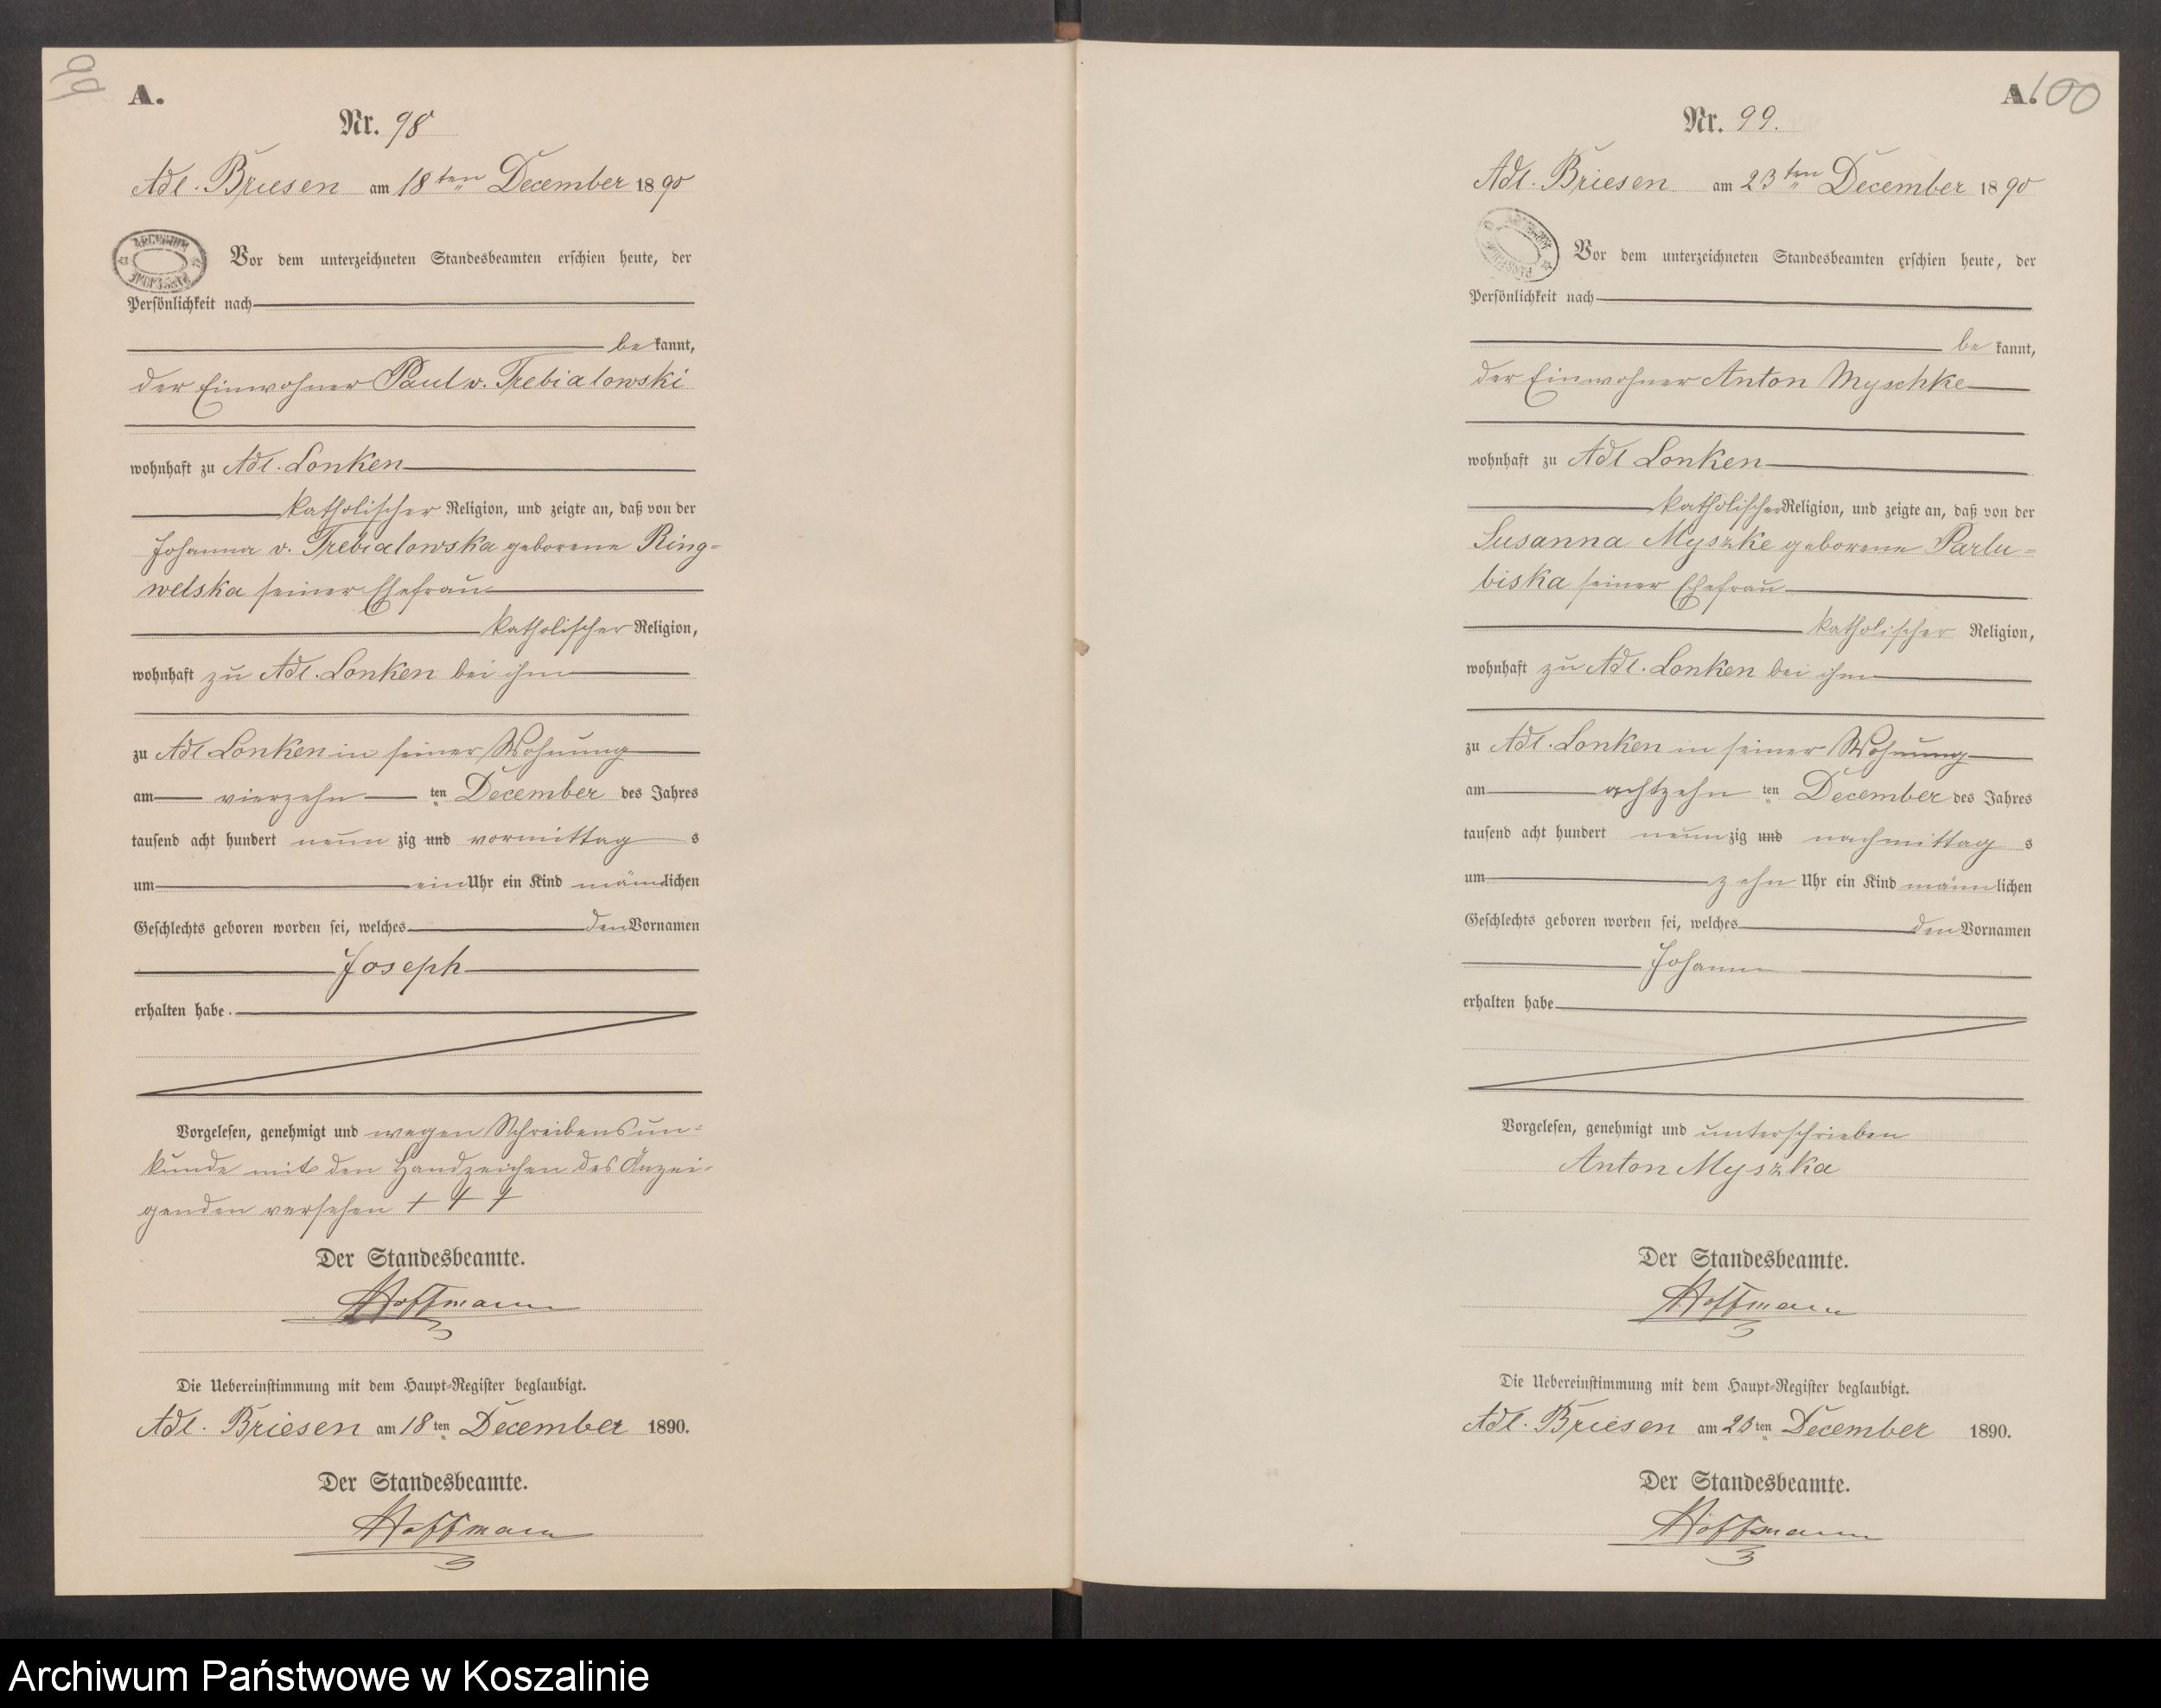 99
A.
Nr. 98
Adl. Briesen am 18ten December 1890
ARCHIWUM PAŃSTWOWE
Vor dem unterzeichneten Standesbeamten erschien heute, der
Persönlichkeit nach
be kannt,
der Einwohner Paul v. Trebialowski
wohnhaft zu Adl. Lonken
katholischer Religion, und zeigte an, daß von der
Johanna v. Trebialowska geborene Ring-
welska seiner Ehefrau
katholischer Religion,
wohnhaft zu Adl. Lonken bei ihm
zu Adl Lonken in seiner Wohnung
am vierzehn ten December des Jahres
tausend acht hundert neun zig und vormittag s
um ein Uhr ein Kind männlichen
Geschlechts geboren worden sei, welches den Vornamen
Joseph
erhalten habe.
Vorgelesen, genehmigt und wegen Schreibensun-
kunde mit den Handzeichen des Anzei-
genden versehen + + +
Der Standesbeamte.
Hoffmann
Die Uebereinstimmung mit dem Haupt-Register beglaubigt.
Adl. Briesen am 18 ten December 1890.
Der Standesbeamte.
Hoffmann
A. 100
Nr. 99.
Adl. Briesen am 23ten December 1890
Vor dem unterzeichneten Standesbeamten erschien heute, der
Persönlichkeit nach
be kannt,
der Einwohner Anton Myschke
wohnhaft zu Adl Lonken
katholischer Religion, und zeigte an, daß von der
Susanna Myszke geborene Parlu-
biska seiner Ehefrau
katholischer Religion,
wohnhaft zu Adl. Lonken bei ihm
zu Adl. Lonken in seiner Wohnung
am achtzehn ten December des Jahres
tausend acht hundert neun zig und nachmittag s
um zehn Uhr ein Kind männlichen
Geschlechts geboren worden sei, welches den Vornamen
Johann
erhalten habe
Vorgelesen, genehmigt und unterschrieben
Anton Myszka
Der Standesbeamte.
Hoffmann
Die Uebereinstimmung mit dem Haupt-Register beglaubigt.
Adl. Briesen am 23 ten December 1890.
Der Standesbeamte.
Hoffmann
Archiwum Państwowe w Koszalinie